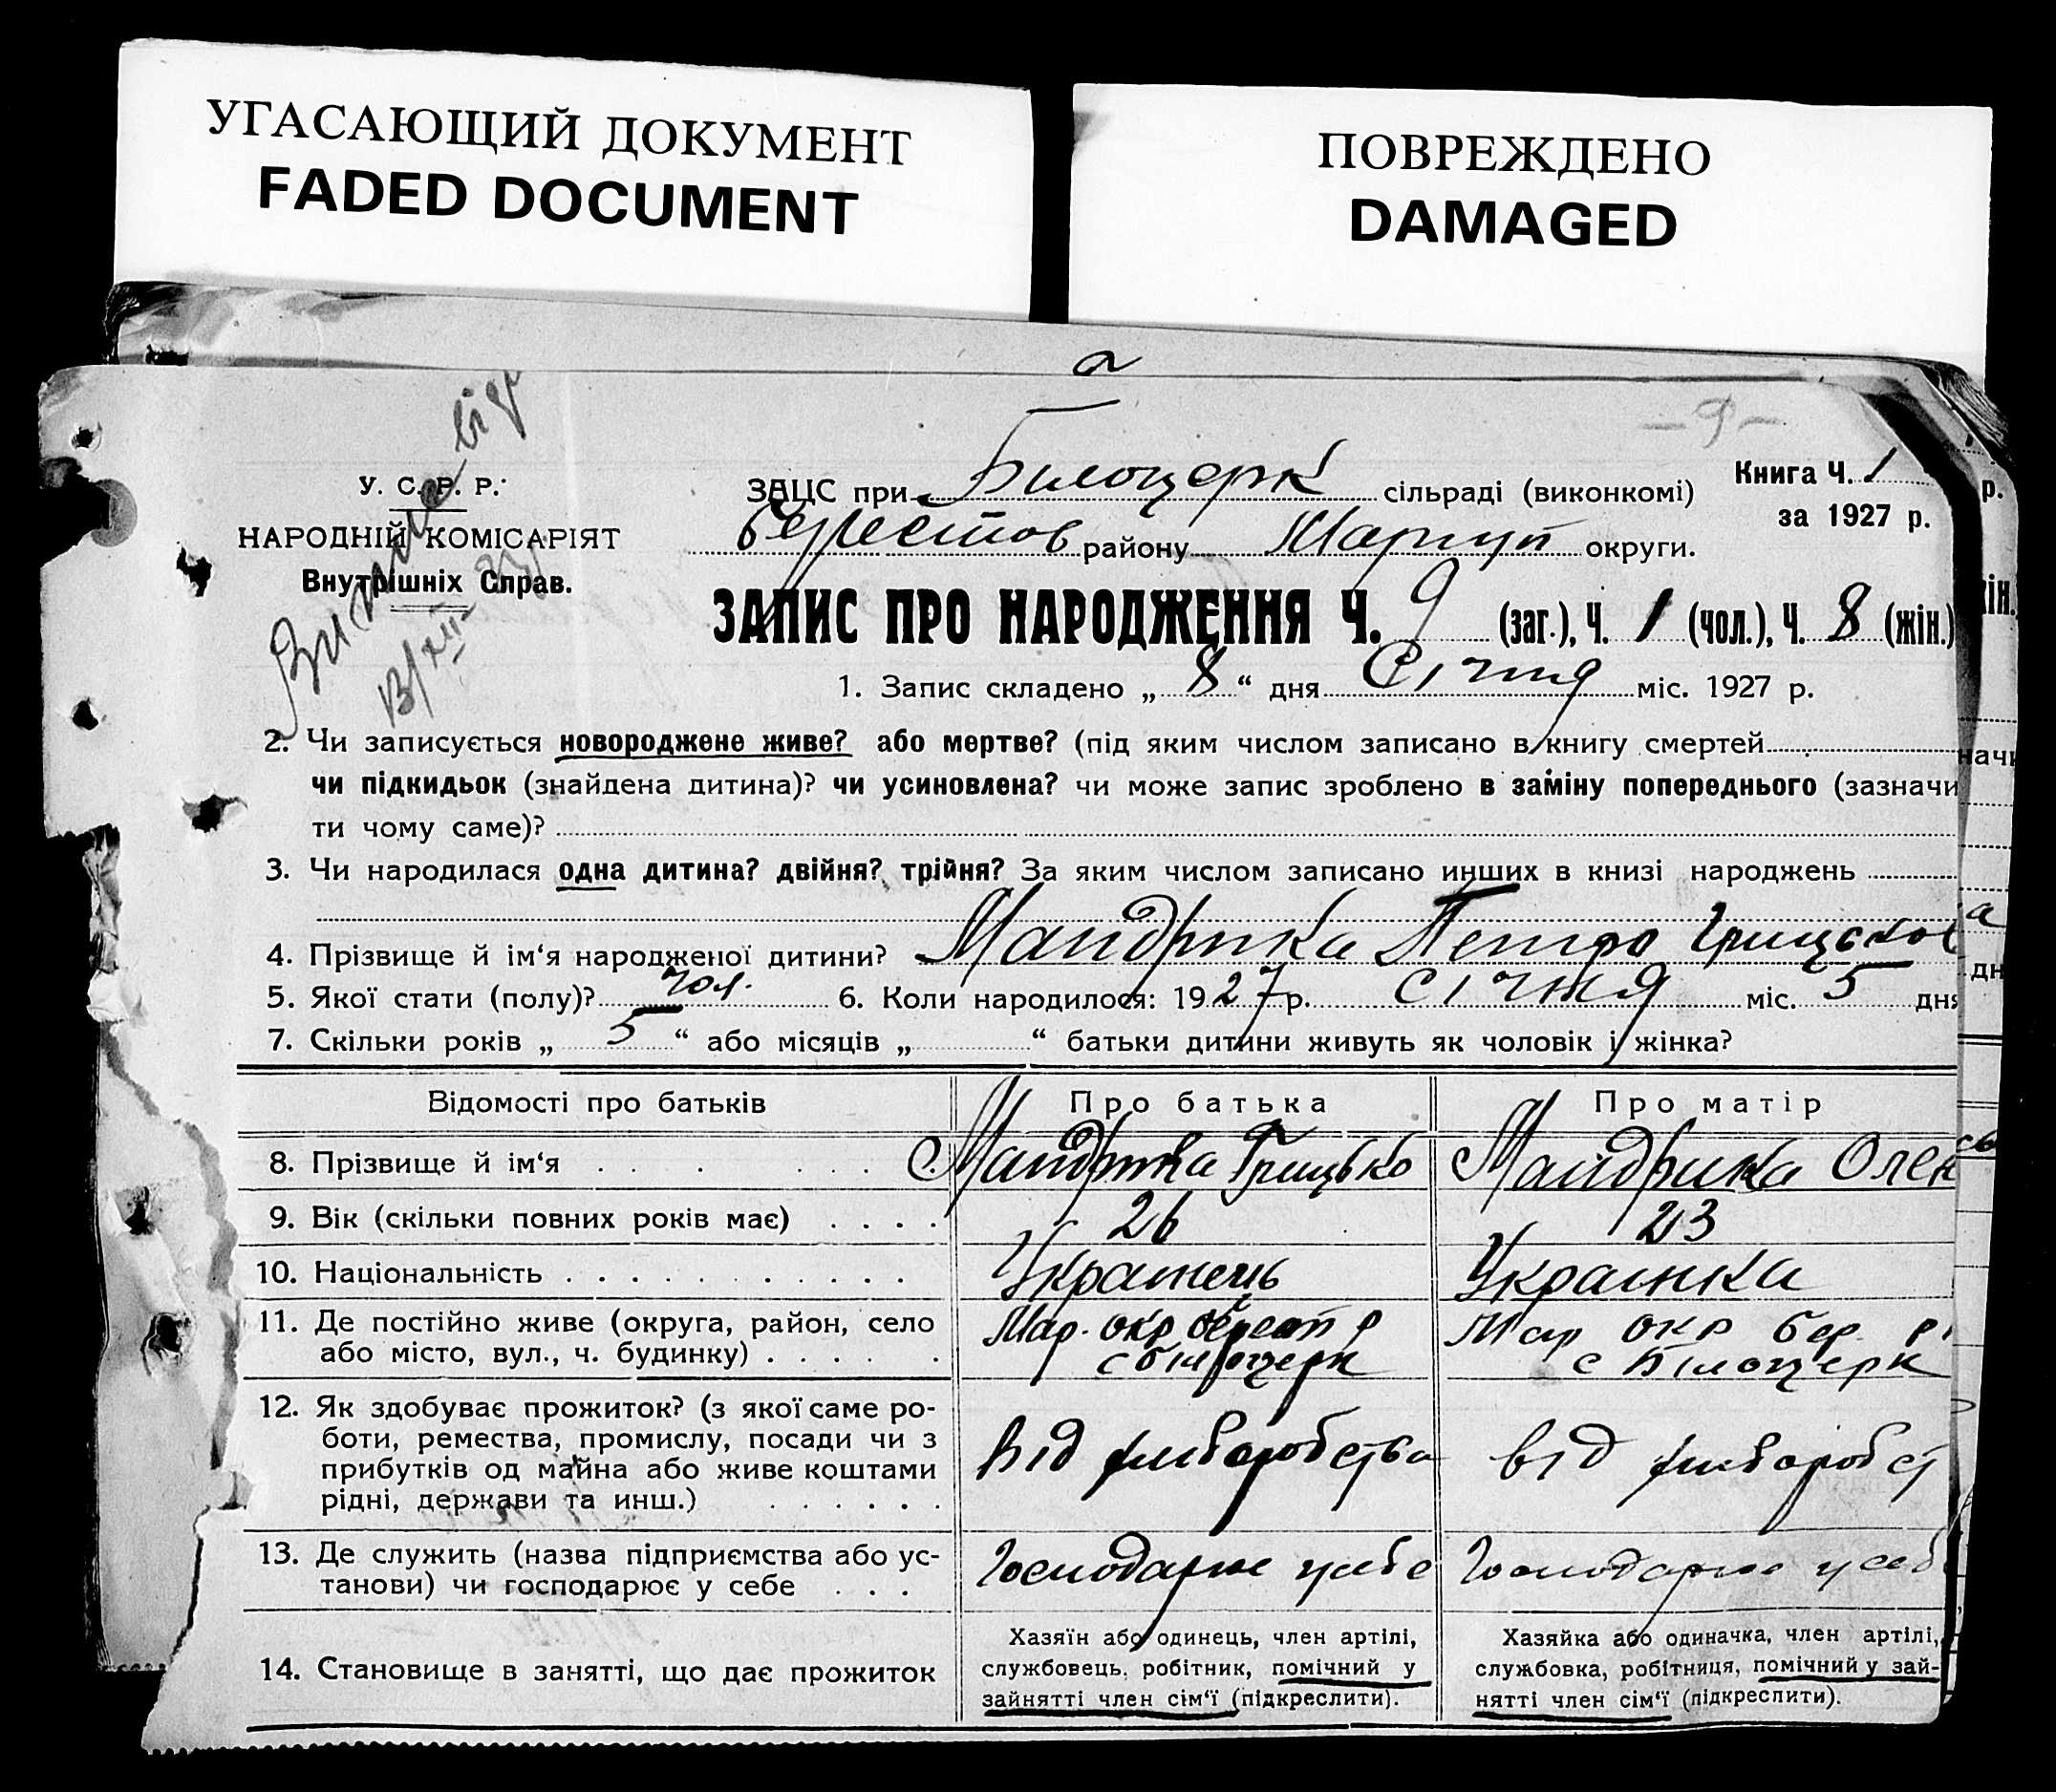 УГАСАЮЩИЙ ДОКУМЕНТ
FADED DOCUMENT
ПОВРЕЖДЕНО
DAMAGED
— 9 —
У. С. Р. Р.
НАРОДНІЙ КОМІСАРІЯТ
Внутрішніх Справ.
ЗАЦС при Білоцерк сільраді (виконкомі)
Книга Ч. 1
за 1927 р.
берестов району Маріуп округи.
ЗАПИС ПРО НАРОДЖЕННЯ Ч. 9 (заг.), Ч. 1 (чол.), Ч. 8 (жін.)
1. Запис складено „ 8 “ дня Січня міс. 1927 р.
2. Чи записується новороджене живе? або мертве? (під яким числом записано в книгу смертей
чи підкидьок (знайдена дитина)? чи усиновлена? чи може запис зроблено в заміну попереднього (зазначи
ти чому саме)?
3. Чи народилася одна дитина? двійня? трійня? За яким числом записано инших в книзі народжень
4. Прізвище й ім‘я народженої дитини? Мандрика Петро Грицьков
5. Якої стати (полу)? чол. 6. Коли народилося: 1927 р. січня міс. 5 дня
7. Скільки років „ 5 “ або місяців „ “ батьки дитини живуть як чоловік і жінка?
Відомості про батьків Про батька Про матір
8. Прізвище й ім‘я Мандрика Грицько Мандрика Олен
9. Вік (скільки повних років має) 26 23
10. Національність Українець Українка
11. Де постійно живе (округа, район, село
або місто, вул., ч. будинку)
Мар. окр берест р
с білоцерк
Мар окр бер. р
с Білоцерк
12. Як здобуває прожиток? (з якої саме ро-
боти, ремества, промислу, посади чи з
прибутків од майна або живе коштами
рідні, держави та инш.)
Від хліборобства
від хлібороб
13. Де служить (назва підприємства або ус-
танови) чи господарює у себе
Господарює у себе
Господарює у себ
14. Становище в занятті, що дає прожиток
Хазяїн або одинець, член артілі,
службовець, робітник, помічний у
зайнятті член сім‘ї (підкреслити).
Хазяйка або одиначка, член артілі,
службовка, робітниця, помічний у зай-
нятті член сім‘ї (підкреслити).